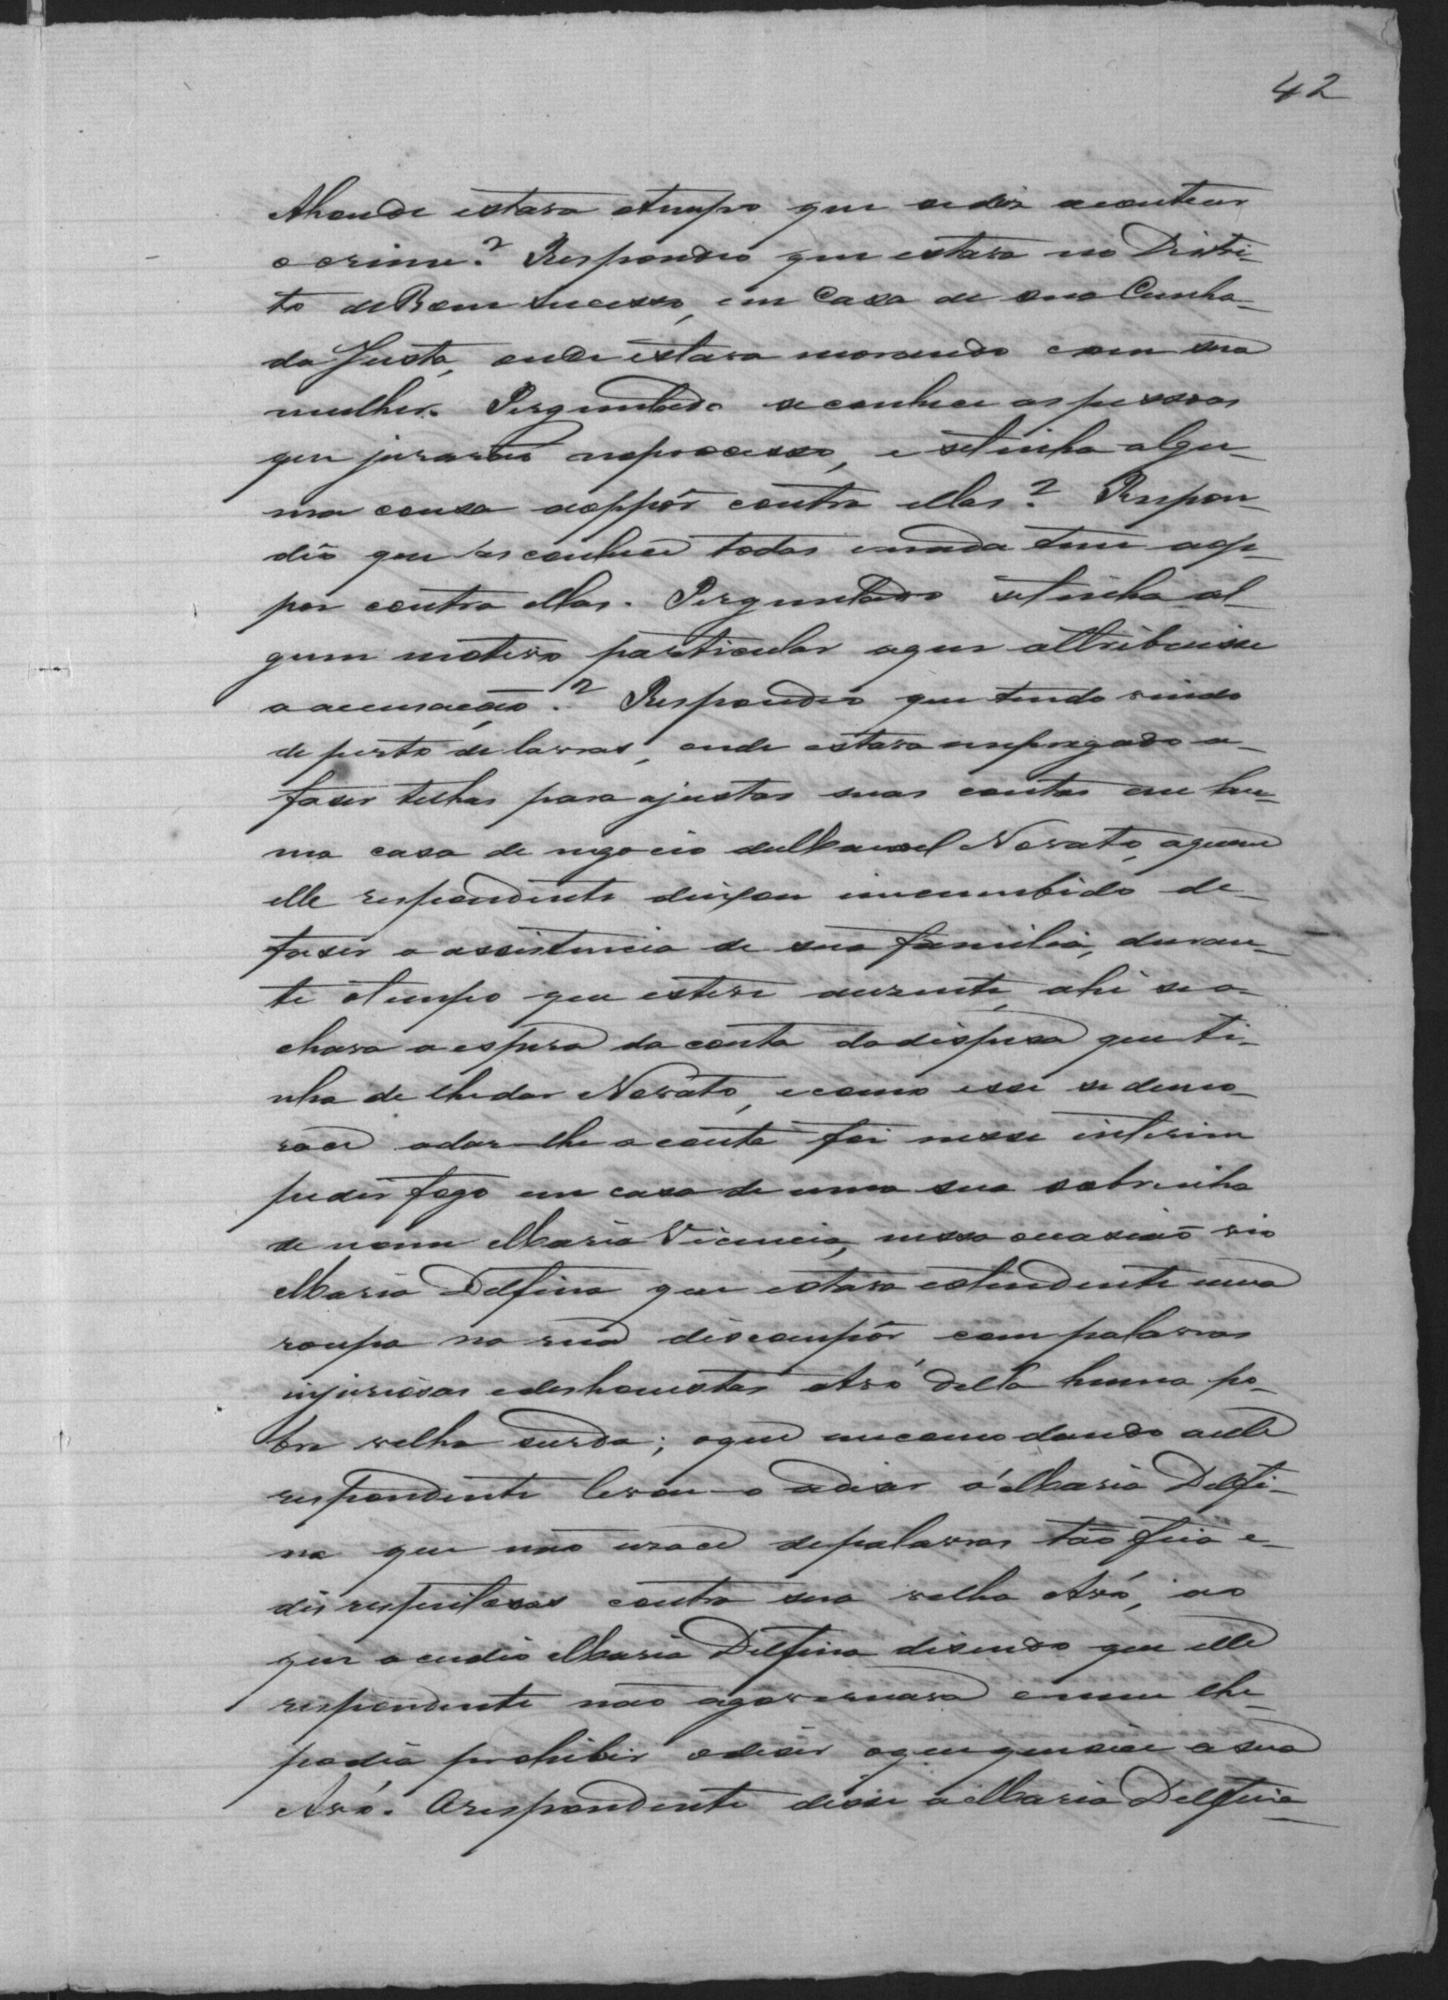 42
Ahonde estava otempo que sedis aconteceu
o crime? Respondeo que estava no Distri-
to deBom sucesso, em Casa de sua Cunha-
da Justa, onde estava morando com sua
mulher. Perguntado seconhece as pessoas
que jurarão noprocesso, e setinha algu-
ma cousa aoppôr contra ellas? Respon-
dêo que as conhece todas enada tem aop-
por contra ellas. Perguntado setinha al-
gum motivo particular aque attribuisse
a accusação? Respondeo que tendo vindo
de perto de lavras, onde estava empregado a-
faser telhas para ajustar suas contas em hu-
ma casa de negocio deManoel Norato, aquem
elle respondente deixou incumbido de-
faser a assistencia de sua familia, duran-
te otempo que esteve auzente, ahi sea-
chava a espera da conta dadispesa que ti-
nha de lhedar Norato, ecomo esse se demo-
race adar-lhe a conta foi nesse interim
pedir fogo em casa de uma sua sobrinha
de nome Maria Vicencia, nessa occasião vio
Maria Delfina que estava estendente uma
roupa na rua discompôr com palavras
injuriosas edeshonestas aAvó della huma po-
bre velha surda; oque incomodando aelle
respondente levou-o adiser á Maria Delfi-
na que não usace depalavras tão feia e-
disrespeitosas contra sua velha Avó, ao
que acudio Maria Delfina disendo que elle
respondente não agovernava enem lhe-
podia prohibir odiser oquequisése a sua
Avó. Orespondente disse a Maria Delfina